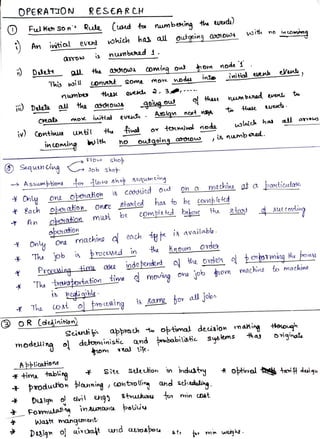 OPERATION RESEARCH
① Fulkerson's Rule (used for numbering the events)
i) An initial event which has all outgoing arrows with no incoming
arrow is numbered 1.
ii) Delete all the arrows coming out from node '1'.
This will convert some more nodes into initial event events,
number these events 2, 3,.....
iii) Delete all the arrows going out of these numbered events to
create more initial events. Assign next nos to these events.
iv) Continue until the final or terminal node which has all arrows
incoming with no outgoing arrow, is numbered.
② Sequencing
Flow shop
Job shop
→ Assumptions for flow shop sequencing
* Only one operation is carried out on a machine at a particular
* Each operation, once started has to be completed
* An operation must be completed before the start of succeeding
operation
* Only one machine of each type is available.
* The job is processed in the known order
* Processing time are independent of the order of performing the
* The transportation time of moving one job from machine to machine
is negligible.
* The cost of processing is same for all jobs
③ OR (definition)
Scientific approach to optimal decision making through
modelling of deterministic and probabilistic systems that originate
from real life.
Applications
* time tabling * Site selection in industry * optimal tariff design
* production planning, controlling and scheduling.
* Design of civil engg structures for min cost
* Formulating insurance policies
* Waste management.
* Design of aircraft and aerospace str for min weight.